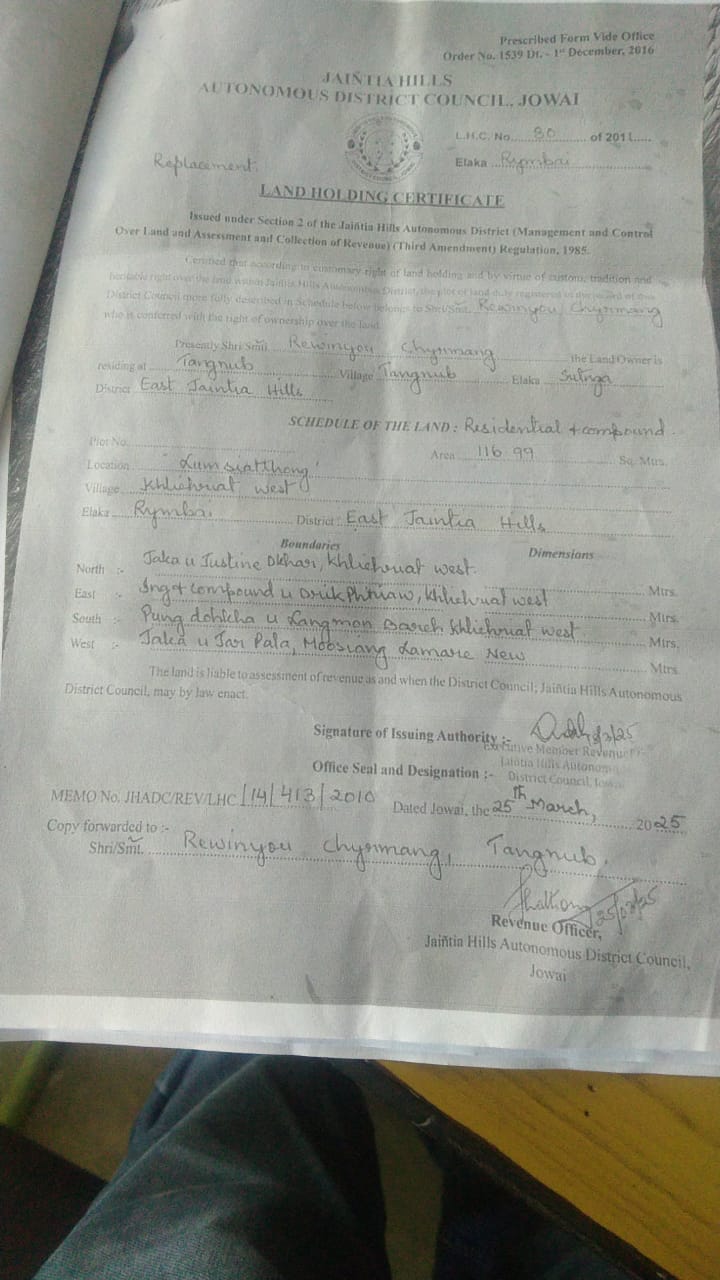 Prescribed Form Vide Office
Order No. 1539 Dt. - 1st December, 2016
JAIÑTIA HILLS
AUTONOMOUS DISTRICT COUNCIL, JOWAI
L.H.C. No. 80 of 2011
Replacement.
Elaka Rymbai
LAND HOLDING CERTIFICATE
Issued under Section 2 of the Jaiñtia Hills Autonomous District (Management and Control
Over Land and Assessment and Collection of Revenue) (Third Amendment) Regulation, 1985.
Certified that according to customary right of land holding and by virtue of custom, tradition and
heritable right over the land within Jaiñtia Hills Autonomous District, the plot of land duly registered in the record of this
District Council more fully described in Schedule below belongs to Shri/Smt. Rewinyou Chyrmang
who is conferred with the right of ownership over the land.
Presently Shri/Smti. Rewinyou Chyrmang the Land Owner is
residing at Tangnub Village Tangnub Elaka Sutnga
District East Jaintia Hills
SCHEDULE OF THE LAND : Residential + compound.
Plot No. Area 116.99 Sq. Mtrs.
Location Lumsiatthong
Village Khliehriat West
Elaka Rymbai District : East Jaintia Hills
Boundaries Dimensions
North :- Jaka u Justine Dkhar, Khliehriat west. Mtrs.
East :- Ing + compound u Phtiaw, Khliehriat west Mtrs.
South :- Pung dohkha u Langmon Bareh Khliehriat west. Mtrs.
West :- Jaka u Jar Pala, Moosiang Lamare New Mtrs.
The land is liable to assessment of revenue as and when the District Council; Jaiñtia Hills Autonomous
District Council, may by law enact.
Signature of Issuing Authority :-
Executive Member Revenue
Jaiñtia Hills Autonomous
Office Seal and Designation :- District Council, Jowai
MEMO No. JHADC/REV/LHC/14/413/2010 Dated Jowai, the 25th March, 2025
Copy forwarded to :-
Shri/Smt. Rewinyou Chyrmang, Tangnub.
25/03/25
Revenue Officer,
Jaiñtia Hills Autonomous District Council,
Jowai